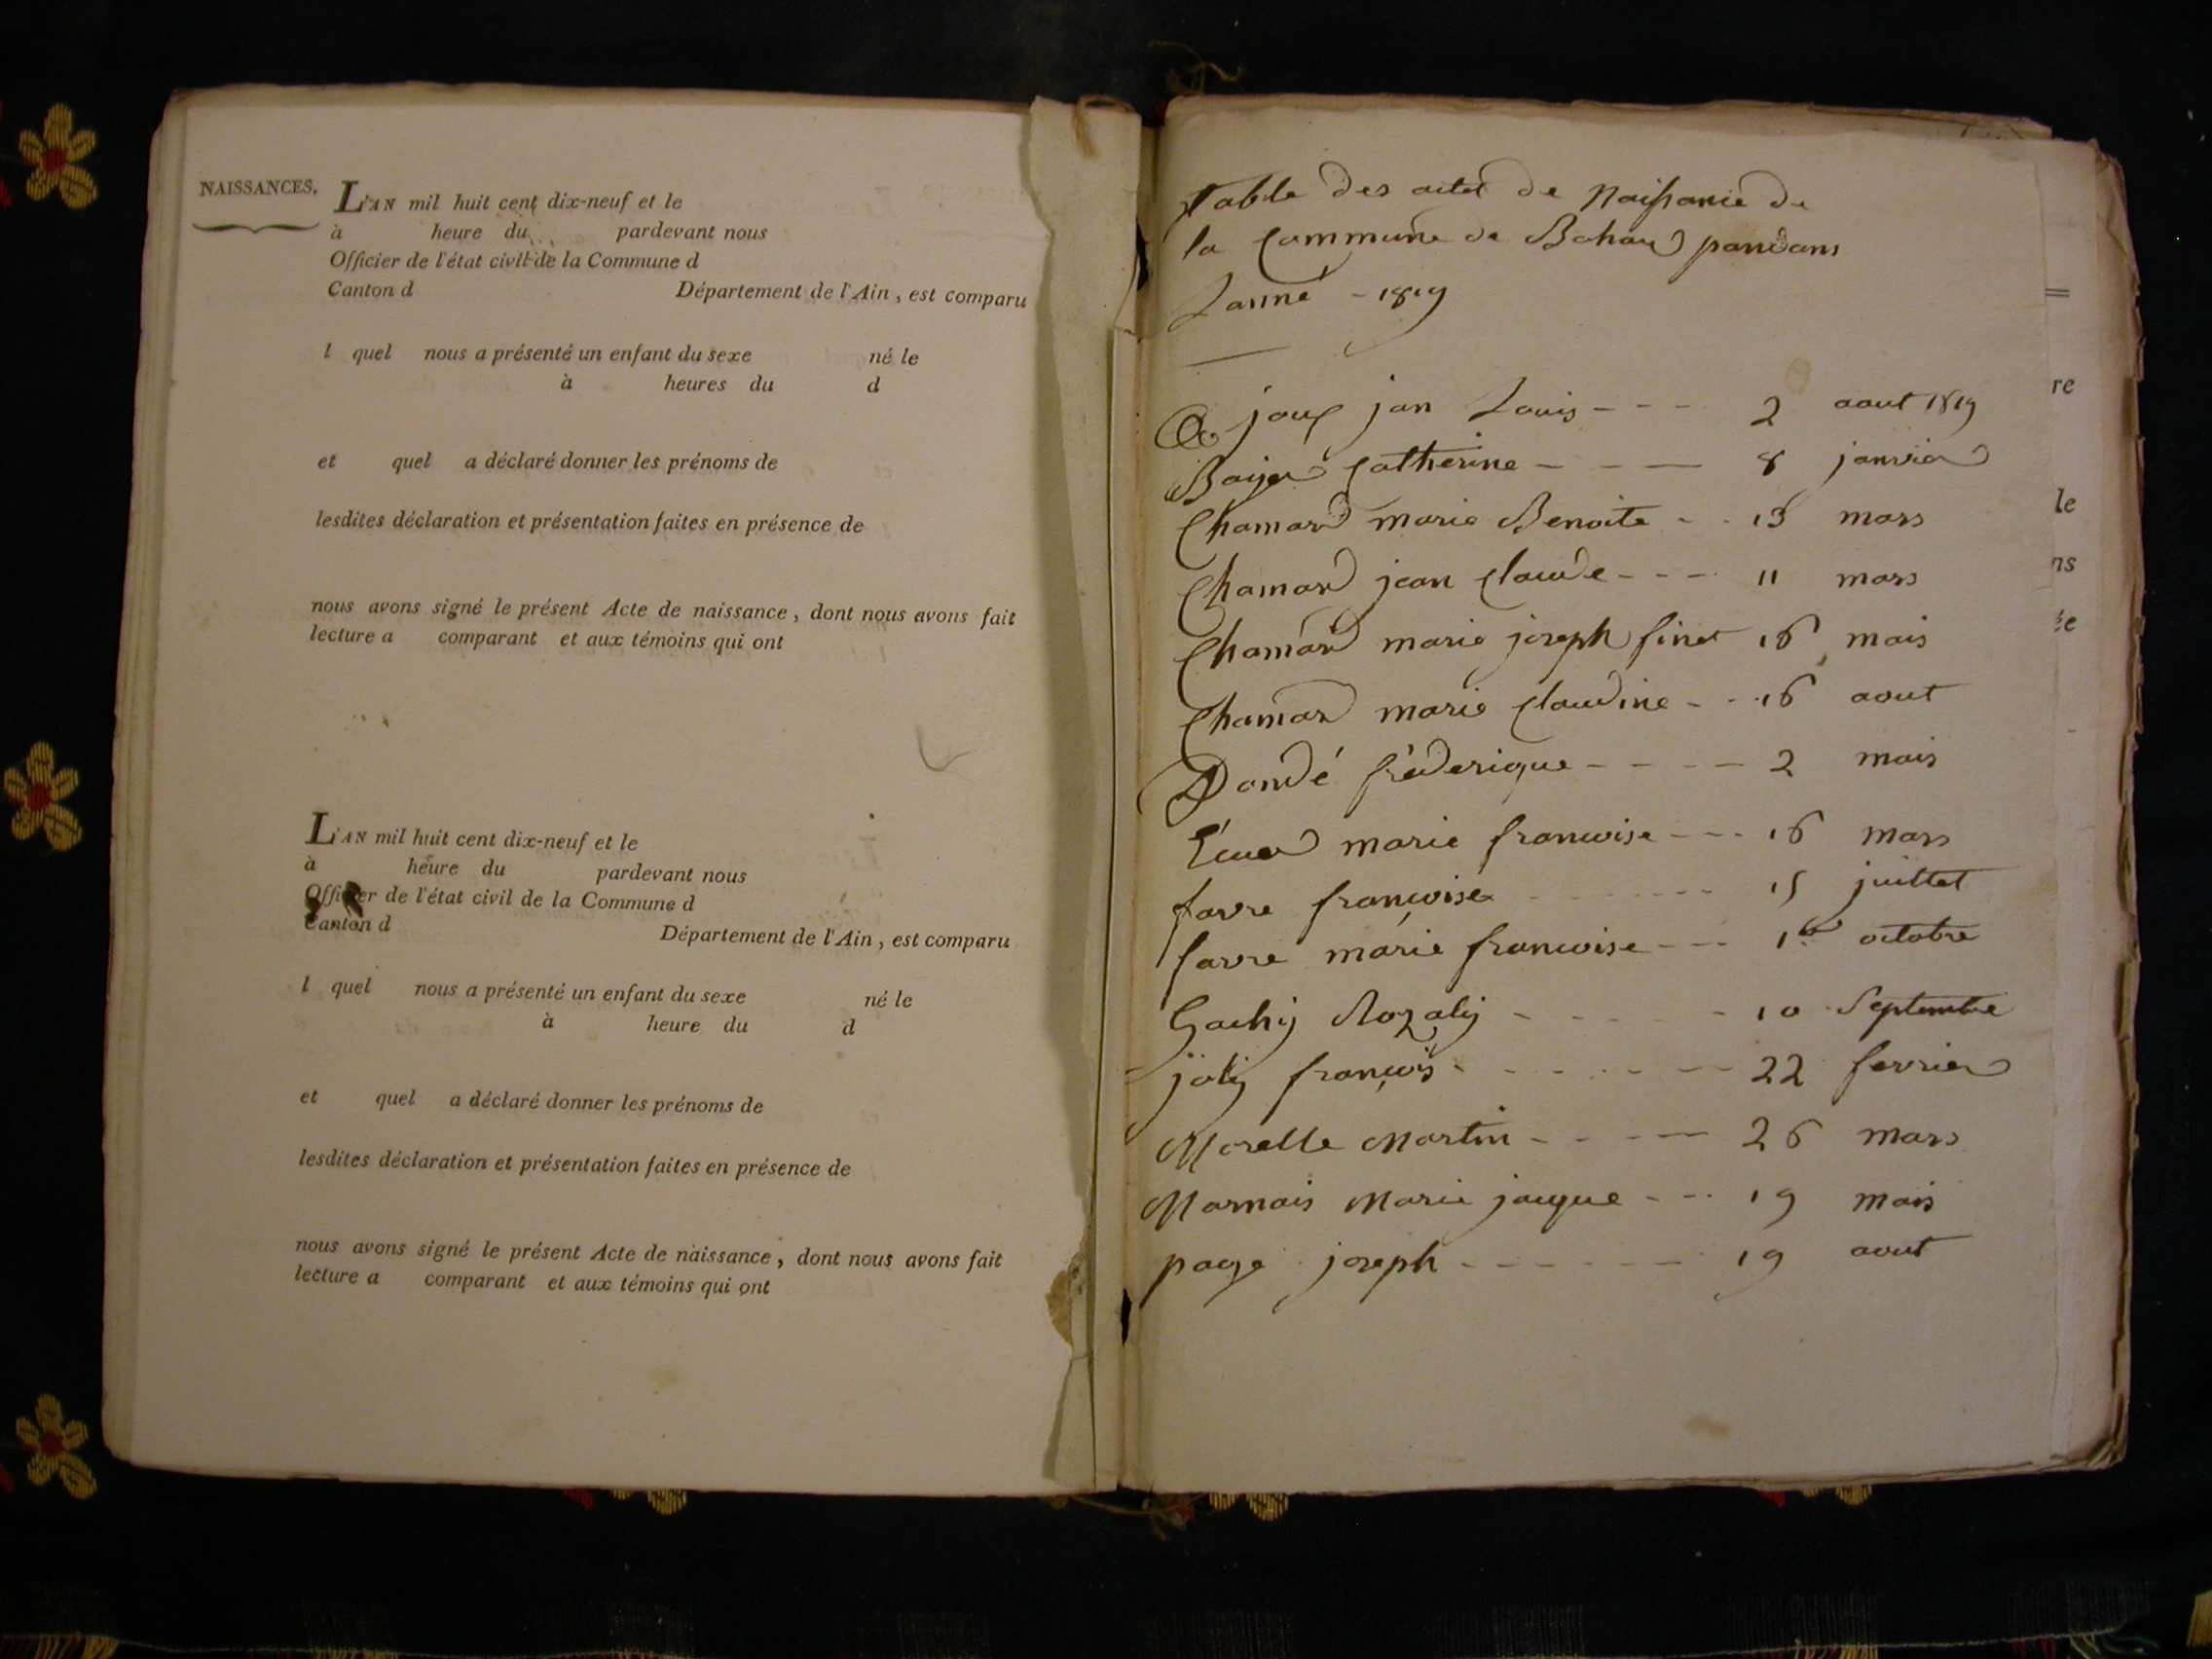 NAISSANCES.
L'AN mil huit cent dix-neuf et le
à heure du pardevant nous
Officier de l'état civil de la Commune d
Canton d Département de l'Ain, est comparu
l quel nous a présenté un enfant du sexe né le
à heures du d
et quel a déclaré donner les prénoms de
lesdites déclaration et présentation faites en présence de
nous avons signé le présent Acte de naissance, dont nous avons fait
lecture a comparant et aux témoins qui ont
L'AN mil huit cent dix-neuf et le
à heure du pardevant nous
Officier de l'état civil de la Commune d
Canton d Département de l'Ain, est comparu
l quel nous a présenté un enfant du sexe né le
à heure du d
et quel a déclaré donner les prénoms de
lesdites déclaration et présentation faites en présence de
nous avons signé le présent Acte de naissance, dont nous avons fait
lecture a comparant et aux témoins qui ont
Table des actes de Naissance de
la Commune de Bohas pandans
Lanné - 1819
joux jan Louis - - - 2 aout 1819
Catherine - - - 8 janvier
Chamard marie Benoite - - 13 mars
Chamard jean Claude - - - 11 mars
Chamard marie joseph finet 16 mais
Chamard marie Claudine - - 16 aout
Dandé fréderique - - - - 2 mais
marie francoise - - - 16 mars
favre françoise - - - 15 juillet
favre marie francoise - - - 1er octobre
Gachy Rozaly - - - - 10 Septembre
joly françois - - - - - 22 fevrier
Morelle Martin - - - - 26 mars
Marnais Marie jacque - - - 19 mais
page joseph - - - - - - 19 aout
re
le
ns